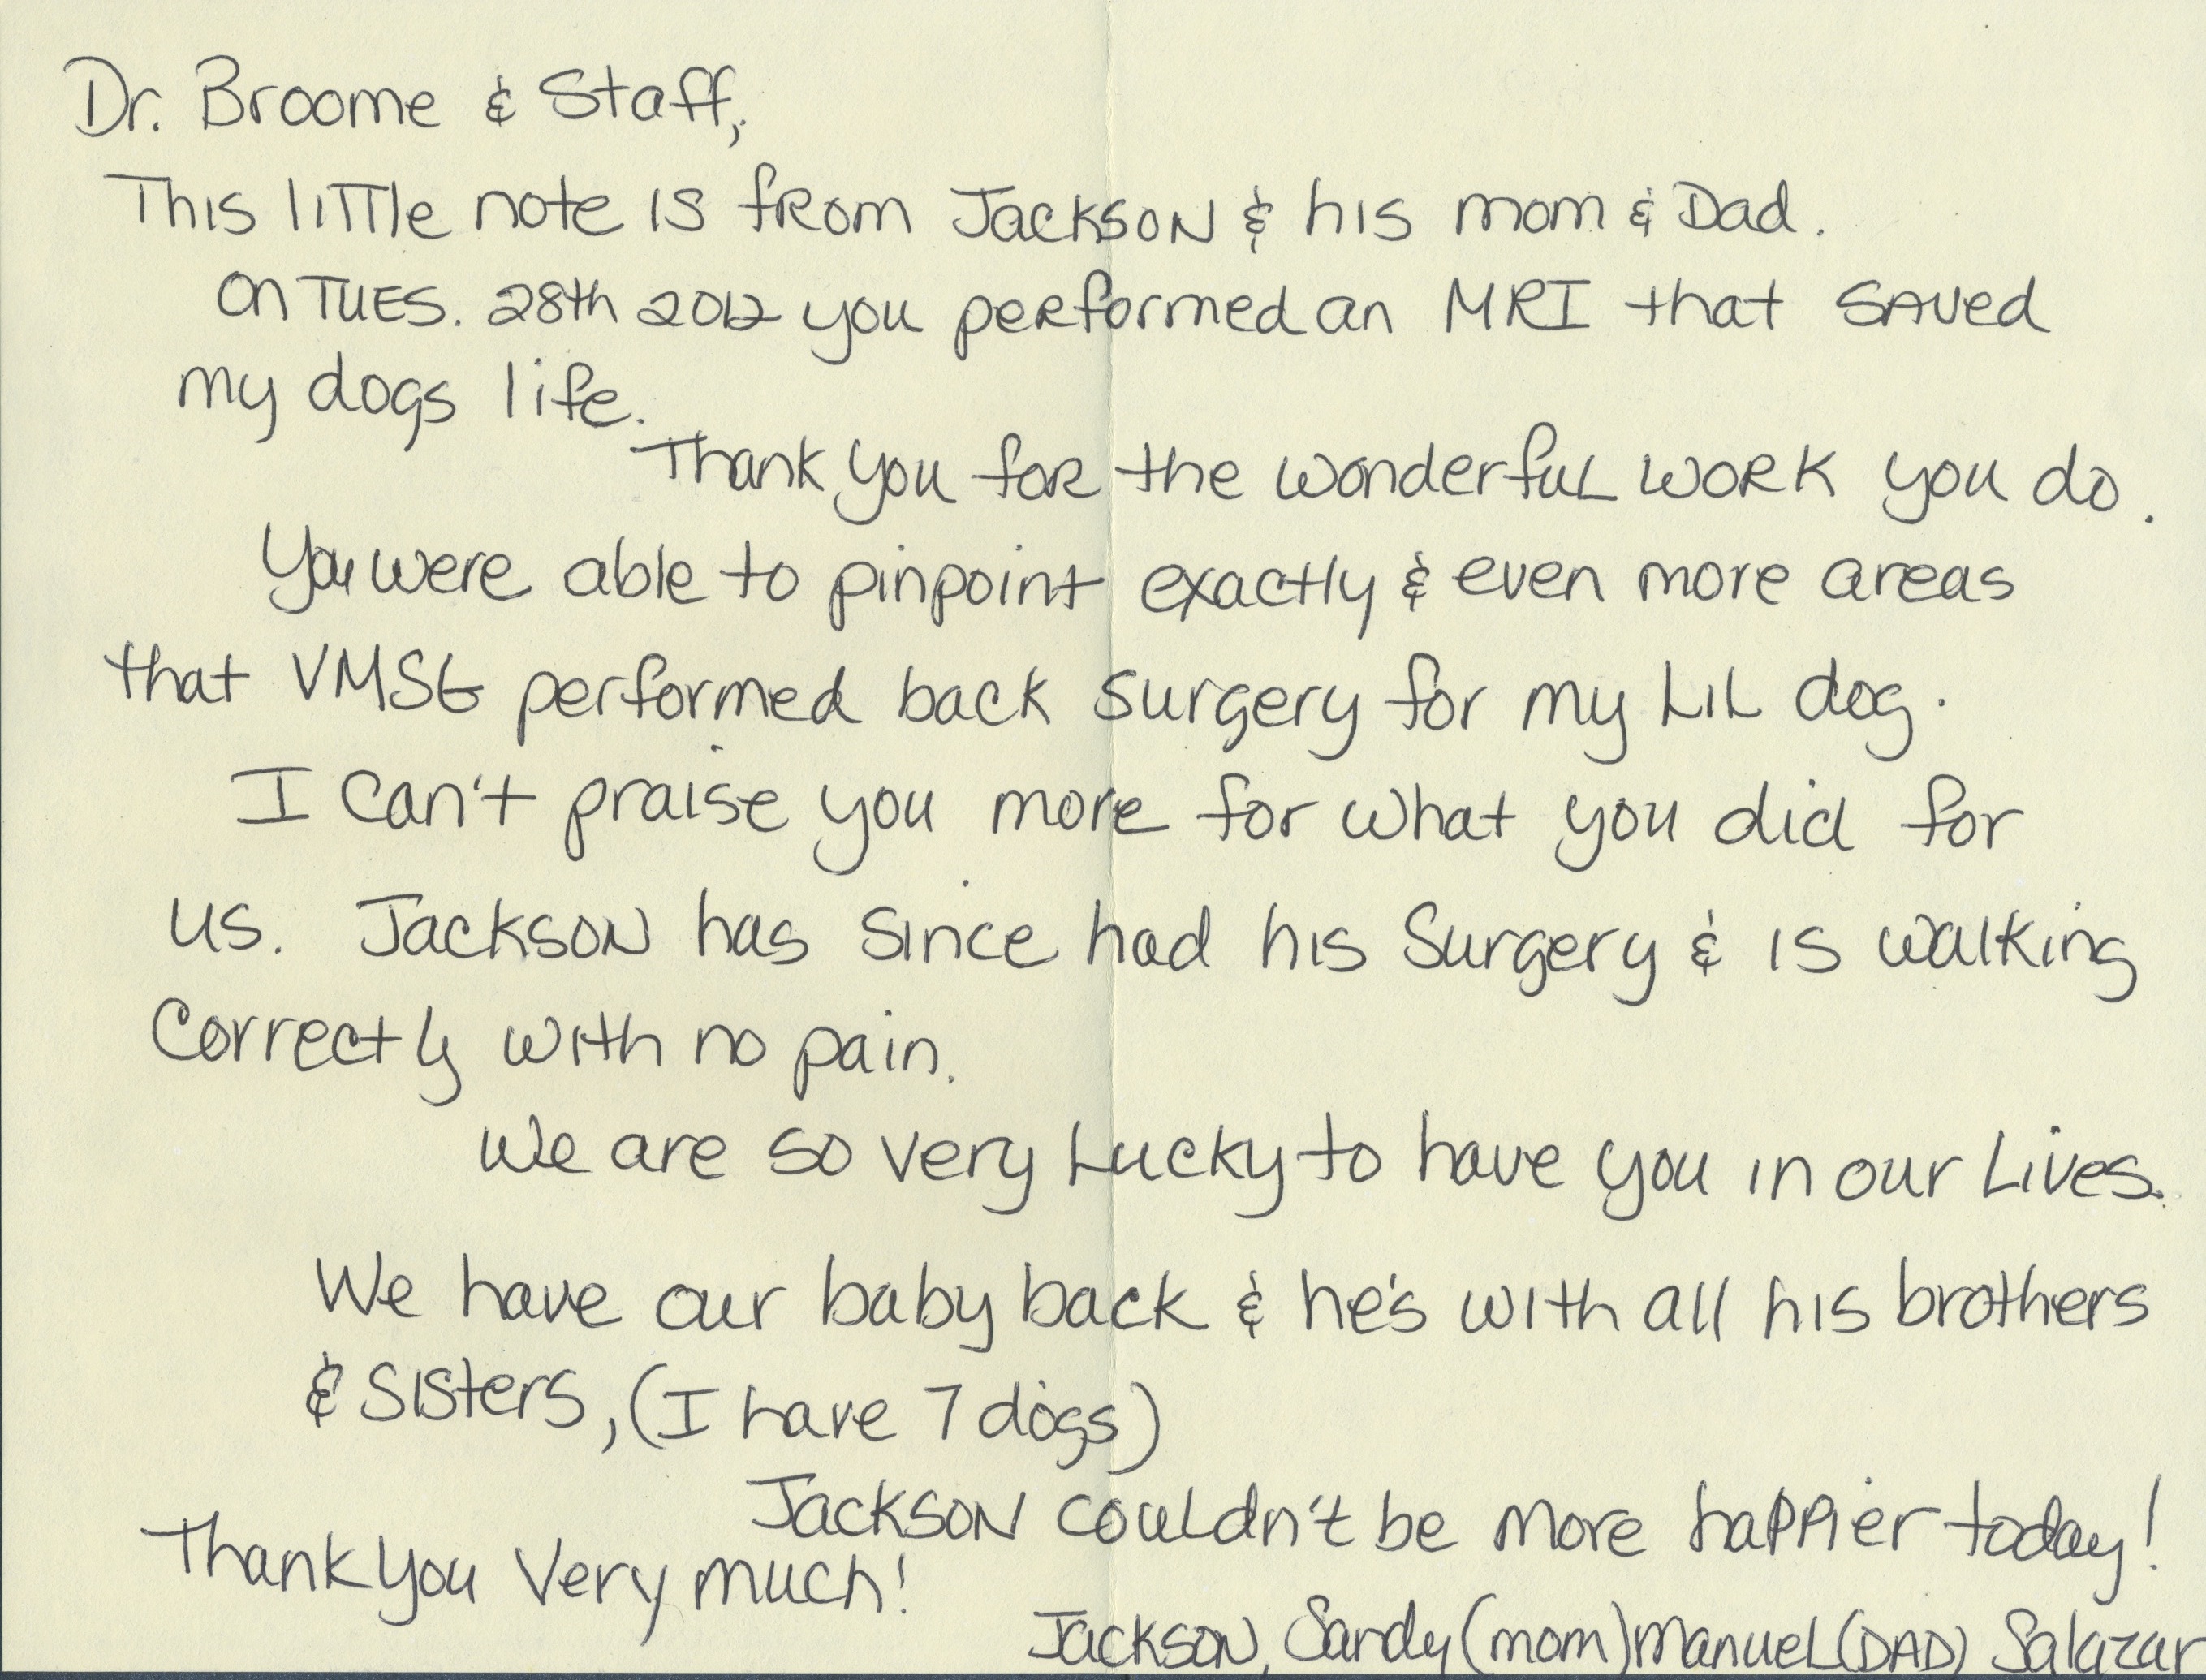 Dr. Broome & Staff,
This little note is from Jackson & his mom & Dad.
On TUES. 28th 2012 you performed an MRI that saved
my dogs life.
Thank you for the wonderful work you do.
You were able to pinpoint exactly & even more areas
that VMSG performed back surgery for my LiL dog.
I can't praise you more for what you did for
us. Jackson has since had his Surgery & is walking
Correctly with no pain.
We are so very Lucky to have you in our Lives.
We have our baby back & he's with all his brothers
& Sisters, (I have 7 dogs)
Jackson couldn't be more happier today!
Thank you Very much!
Jackson, Sandy (mom) Manuel (DAD) Salazar